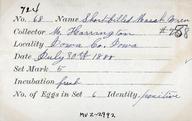 724
No. 68 Name Short-billed Marsh Wren
Collector M. Harrington #288
Locality Iowa Co. Iowa
Date July 30th 1888
Set Mark 5
Incubation fresh
No. of Eggs in Set 6 Identity positive
MVZ-2792